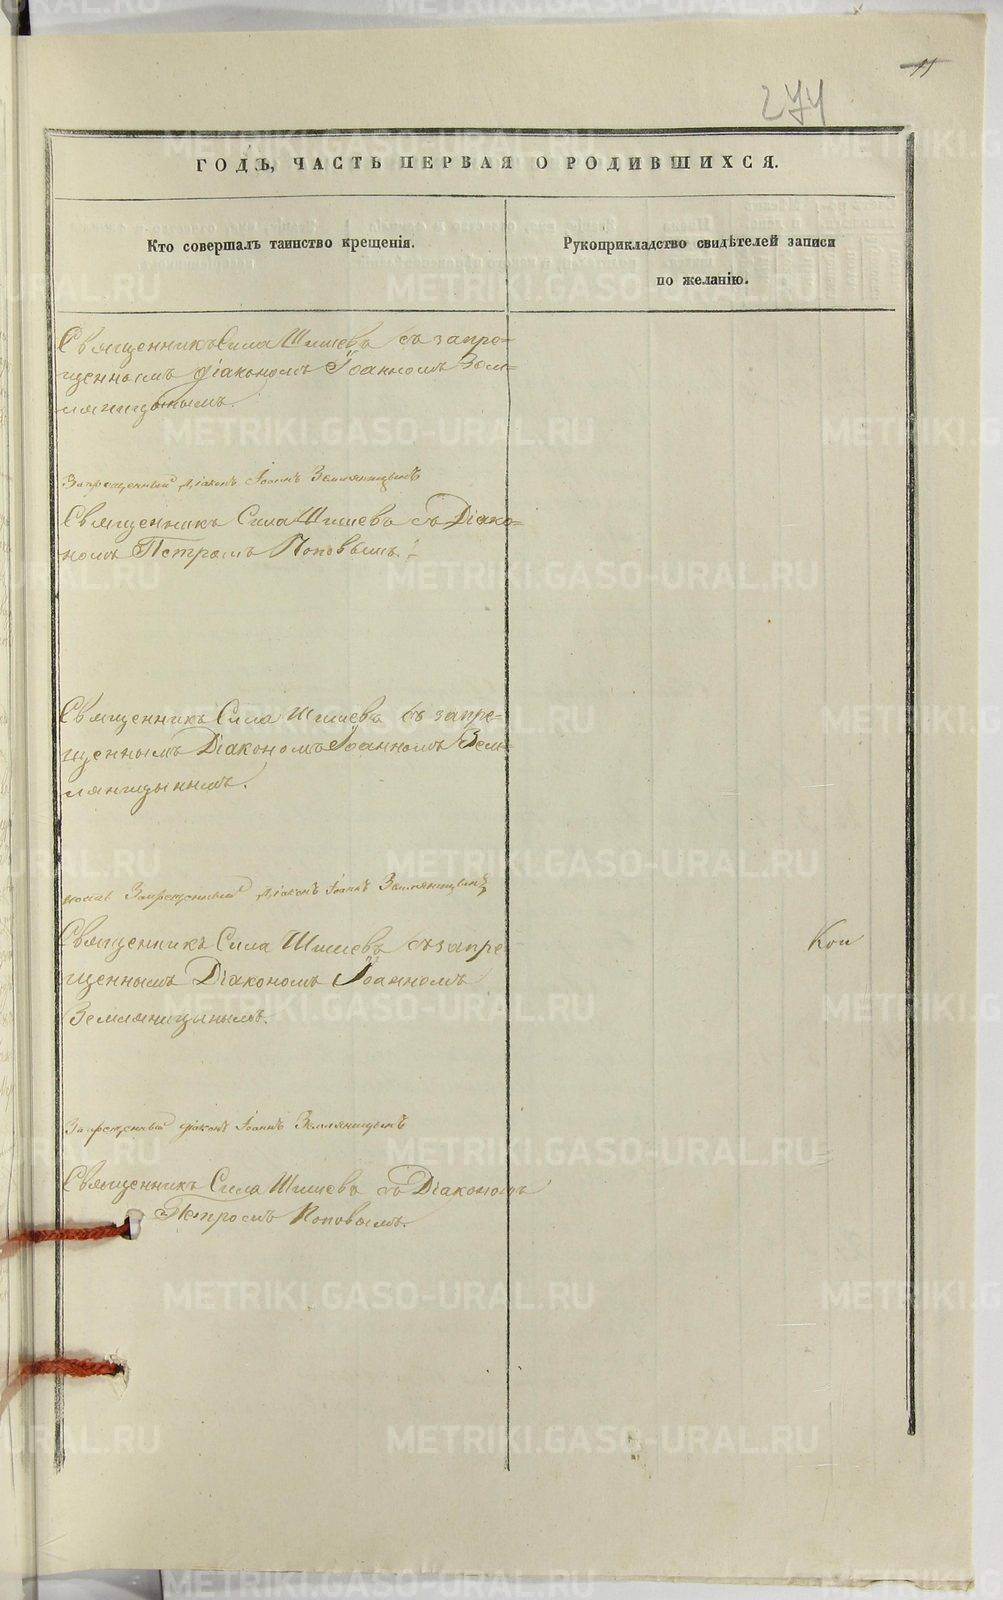 11
274
ГОДЪ, ЧАСТЬ ПЕРВАЯ О РОДИВШИХСЯ.
Кто совершалъ таинство крещенія.
Рукоприкладство свидѣтелей записи
по желанію.
Священникъ Сила Шишевъ съ запре-
щеннымъ діакономъ Іоанномъ Зем-
ляницынымъ.
Запрещенный діаконъ Іоаннъ Земляницынъ
Священникъ Сила Шишевъ съ Діако-
номъ Петромъ Поповымъ.
Священникъ Сила Шишевъ съ запре-
щеннымъ Діакономъ Іоанномъ Зем-
ляницынымъ.
Запрещенный діаконъ Іоаннъ Земляницынъ
Священникъ Сила Шишевъ съ запре
щеннымъ Діакономъ Іоанномъ
Земляницынымъ.
Коп
Запрещенный діаконъ Іоаннъ Земляницынъ
Священникъ Сила Шишевъ съ Діакономъ
Петромъ Поповымъ.
METRIKI.GASO-URAL.RU